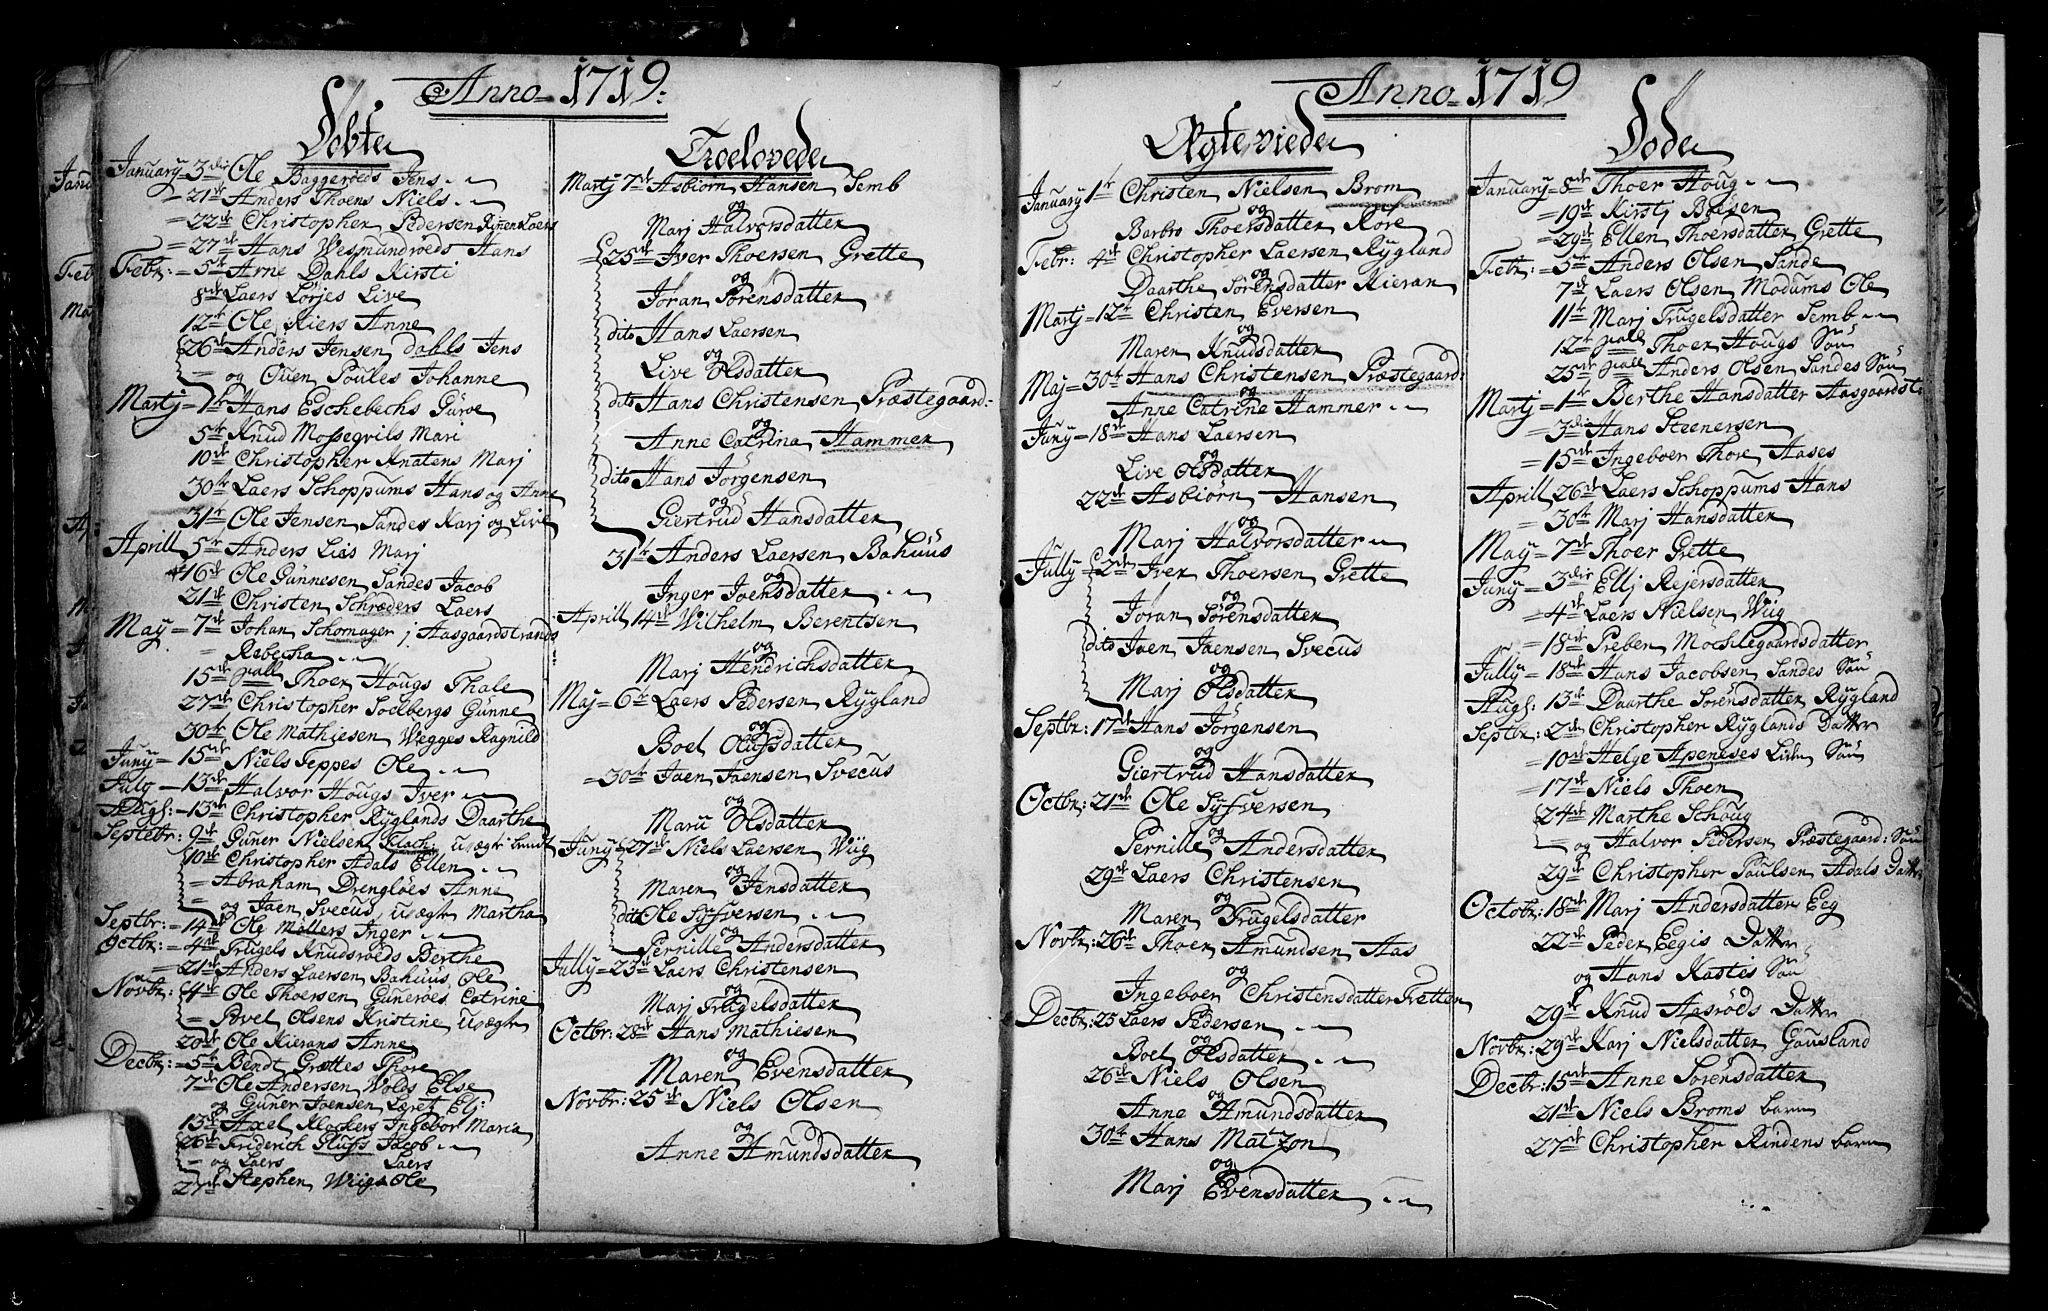 Anno 1719:
Døbte
January = 3die Ole Baggeroeds Jens
= 21de Anders Thoens Niels
= 22de Christopher Pedersen Rinen Laers
= 27de Hans Vesmundroeds Hans
Febr: = 5te Arne Dahls Kirsti
8de Laers Lørjes Live
12te Ole Kiers Anne
26de Anders Jensen dahls Jens
= og Ouen Poules Johanne
Martj = 1te Hans Eschebechs Gurve
5te Knud Mossegvils Mari
10de Christopher Knatens Marj
30te Laers Schoppums Hans og Anne
31te Ole Jensen Sandes Karj og Live
Aprill 5te Anders Liis Marj
16de Ole Gunnesen Sandes Jacob
21de Christen Schræders Laers
May = 7de Johan Schomager j Aasgaardstrands
= Rebecha
15de pall Thoer Hougs Thale
27de Christopher Soelbergs Gunne
30te Ole Mathiesen Vegges Ragnild
Juny = 15de Niels Jeppes Ole
July = 13de Halvor Hougs Iver
Augs: = 13de Christopher Ryglands Daarthe
Septebr: 9de Guner Nielsen Flach, uægte bundt
10de Christopher Adals Ellen
= Abraham Drengløes Anne
= og Jaen Svecus, uægte Martha
Septbr: = 14de Ole Møllers Inger
Octbr: = 4de Trugels Knudsrøeds Berthe
= 21de Anders Laersen Bahuus Ole
Novbr: 4de Ole Thoersen Guneroes Catrine
= Povel Olsens Kristine uægte
20de Ole Kierans Anne
Decbr: = 5te Bendt Grøttes Thore
7de Ole Andersen Volds Else
og Guner Joensen Læret Elj:
13de Axel Klockers Ingebor Maria
26de Friderich Rufs Jacob
= og Laers Laers
27de Stephen Wiigs Ole
Troelovede
Martj 7de Asbiørn Hansen Semb
og
Marj Halvorsdatter
25de Iver Thoersen Grette
og
Jøran Sørensdatter
dito Hans Laersen
og
Live Olsdatter
dito Hans Christensen Præstegaard:
og
Anne Catrina Hammer
dito Hans Jørgensen
og
Giertrud Hansdatter
31te Anders Laersen Bahuus
og
Inger Joensdatter
Aprill 14de Wilhelm Berentsen
og
Marj Hendrichsdatter
Maj = 6te Laers Pedersen Rygland
og
Boel Olufsdatter
= 30te Jaen Jaensen Svecus
og
Maru Olsdatter
Juny 27de Niels Laersen Wiig
og
Maren Jensdatter
dito Ole Syfversen
og
Pernille Andersdatter
Jully = 23de Laers Christensen
og
Marj Trugelsdatter
Octbr: 28de Hans Mathiesen
og
Maren Evensdatter
Novbr: 25de Niels Olsen
og
Anne Amundsdatter
Anno 1719
Ægtevieder
January 1te Christen Nielsen Brom
og
Barbro Thoersdatter Rore
Febr: 4de Christopher Laersen Rygland
og
Daarthe Sørensdatter Kieran
Martj = 12te Christen Eversen
og
Maren Knudsdatter
Maj = 30te Hans Christensen Præstegaard:
og
Anne Catrine Hammer
Juny = 18de Hans Laersen
og
Live Olsdatter
22de Asbiørn Hansen
og
Marj Halvorsdatter
Jully 2de Iver Thoersen Grette
og
Jøran Sørensdatter
dito Jaen Jaensen Svecus
og
Marj Olsdatter
Septbr: 17de Hans Jørgensen
og
Giertrud Hansdatter
Octbr: 21de Ole Syfversen
og
Pernille Andersdatter
29de Laers Christensen
og
Maren Trugelsdatter
Novbr: 26de Thoer Amundsen Aas
og
Ingeboer Christensdatter Tretten
Decbr: 25 Laers Pedersen
og
Boel Olsdatter
26de Niels Olsen
og
Anne Amundsdatter
30te Hans Matzon
og
Marj Evensdatter
Døde
January = 8de Thoer Houg
= 19de Kirstj Boesen
= 29de Ellen Thoersdatter Grette
Febr: = 5te Anders Olsen Sande
7de Laers Olsen Modums Ole
11te Marj Trugelsdatter Semb
12te pall Thoer Hougs Søn
25de pall Anders Olsen Sandes Søn
Martj = 1te Berthe Hansdatter Aasgaardstr
= 3die Hans Steenersen
= 15de Ingeboer Thore Aases
Aprill 26de Laers Schoppums Hans
= 30te Marj Hansdatter
May = 7de Thoer Grette
Juny = 3die Ellj Rejersdatter
= 4de Laers Nielsen Wiig
= 18de Preben Mochlegaardsdatter
Jully = 18de Hans Jacobsen Sandes Søn
Augs: 13de Daarthe Sørensdatter Rygland
Septbr: = 2de Christopher Ryglands Datter
= 10de Helge Apeneses Liden Søn
= 17de Niels Thoen
24de Marthe Schoug
= og Halvor Pedersen Præstegaard: Søn
29de Christopher Poulsen Adals Datter
Octobr: 18de Marj Andersdatter Eeg
22de Peder Eegis Datter
og Hans Kastes Søn
29de Knud Aasrøds Datter
Novbr: 29de Karj Nielsdatter Gousland
Decbr: 15de Anne Sørensdatter
21de Niels Broms barn
27de Christopher Rindens barn